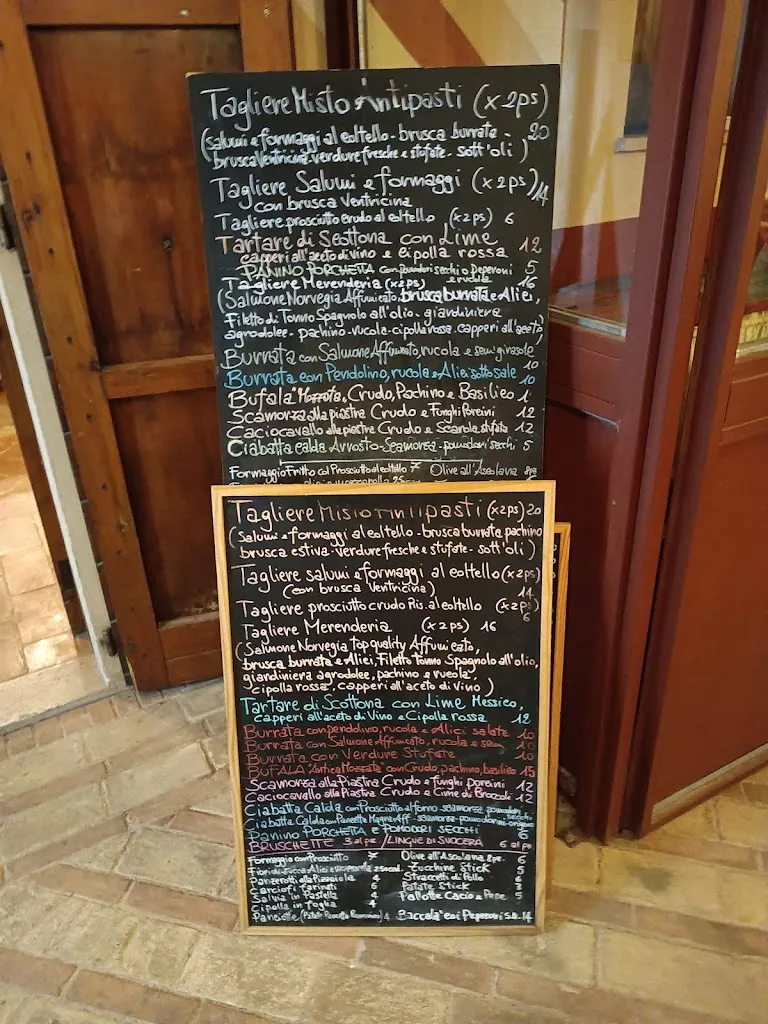 Tagliere Misto Antipasti (x2ps)
(salumi e formaggi al coltello - brusca burrata - 20
brusca Ventricina - verdure fresche e stufate - sott'oli)
Tagliere Salumi e formaggi (x2ps) 14
con brusca Ventricina
Tagliere prosciutto crudo al coltello (x2ps) 6
Tartare di Scottona con Lime 12
capperi all'aceto di vino e cipolla rossa
PANINO PORCHETTA con pomodori secchi o Peperoni 5
e rucola
Tagliere Merenderia (x2ps) 16
(Salmone Norvegia Affumicato, brusca burrata e Alici,
Filetto di Tonno Spagnolo all'olio - giardiniera
agrodolce - pachino - rucola - cipolla rossa - capperi all'aceto)
Burrata con Salmone Affumicato, rucola e semi girasole
10
Burrata con Pendolino, rucola e Alici sotto sale
10
Bufala Crudo, Pachino e Basilico
Scamorza alla piastra Crudo e Funghi Porcini 12
Caciocavallo alla piastra Crudo e Scarola stufata 12
Ciabatta calda Arrosto - Scamorza - pomodori secchi 5
Formaggio Fritto col Prosciutto al coltello 7 Olive all'Ascolana 8pz
Tagliere Misto Antipasti (x2ps) 20
(salumi e formaggi al coltello - brusca burrata, pachino
brusca estiva - verdure fresche e stufate - sott'oli)
Tagliere salumi e formaggi al coltello (x2ps)
(con brusca Ventricina) 14
Tagliere prosciutto crudo Ris. al coltello (x2ps)
6
Tagliere Merenderia (x2ps) 16
(Salmone Norvegia top quality Affumicato,
brusca burrata e Alici, Filetto Tonno Spagnolo all'olio,
giardiniera agrodolce, pachino e rucola,
cipolla rossa, capperi all'aceto di Vino)
Tartare di Scottona con Lime Messico,
capperi all'aceto di Vino e Cipolla rossa 12
Burrata con pendolino, rucola e Alici salate 10
Burrata con Salmone Affumicato, rucola e semi 10
Burrata con Verdure Stufate 10
BUFALA "Antica Mozzata" con Crudo, pachino, basilico 15
Scamorza alla Piastra Crudo e funghi porcini 12
Caciocavallo alla Piastra Crudo e Cime di Broccoli 12
Ciabatta Calda con Prosciutto al forno scamorza pomodori
secchi
Ciabatta Calda con Pancetta Magra Aff - scamorza - pomodorini - origano
Panino PORCHETTA E POMODORI SECCHI
BRUSCHETTE 3 al pz / LINGUE DI SUOCERA 6 al pz
Formaggio con Prosciutto 7 Olive all'Ascolana 8pz. 6
Fiori di zucca Alici e mozzarella 2,50 cad. Zucchine Stick 5
Panzerotti alla Pizzaiola 4 Straccetti di Pollo 6
Carciofi Farinati 6 Patate Stick 3
Salvia in Pastella 4 Pallotte Cacio e Pepe 5
Cipolla in Foglia 4
Panciotte 4 Baccalà e coi Peperoni S.G. 14